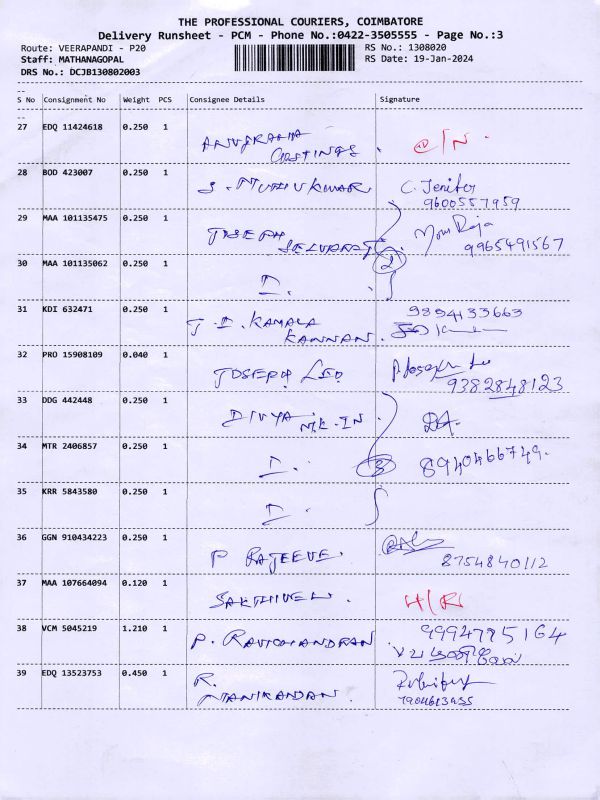 THE PROFESSIONAL COURIERS, COIMBATORE
Delivery Runsheet - PCM - Phone No.:0422-3505555 - Page No.:3
Route: VEERAPANDI - P20 RS No.: 1308020
Staff: MATHANAGOPAL RS Date: 19-Jan-2024
DRS No.: DCJB130802003
S No Consignment No Weight PCS Consignee Details Signature
27 EDQ 11424618 0.250 1
CASTINGS.
28 BOD 423007 0.250 1 S. MUTHUKUMAR C. Jenifer
9600557959
29 MAA 101135475 0.250 1 JOSEPH
SELVARAJ 9965491567
2
30 MAA 101135062 0.250 1 D.
31 KDI 632471 0.250 1 J.D. KAMALA 9894133663
KANNAN.
32 PRO 15908109 0.040 1 JOSEPH LEO. P. Joseph Leo
9382848123
33 DDG 442448 0.250 1 DIVYA
34 MTR 2406857 0.250 1 D. 3 8940466749.
35 KRR 5843580 0.250 1 D.
36 GGN 910434223 0.250 1 P RAJEEVE.
8754840112
37 MAA 107664094 0.120 1 SAKTHIVEL. H/R
38 VCM 5045219 1.210 1 P. RAVICHANDRAN 9994795164
39 EDQ 13523753 0.450 1 R.
MANIKANDAN. 7904613955